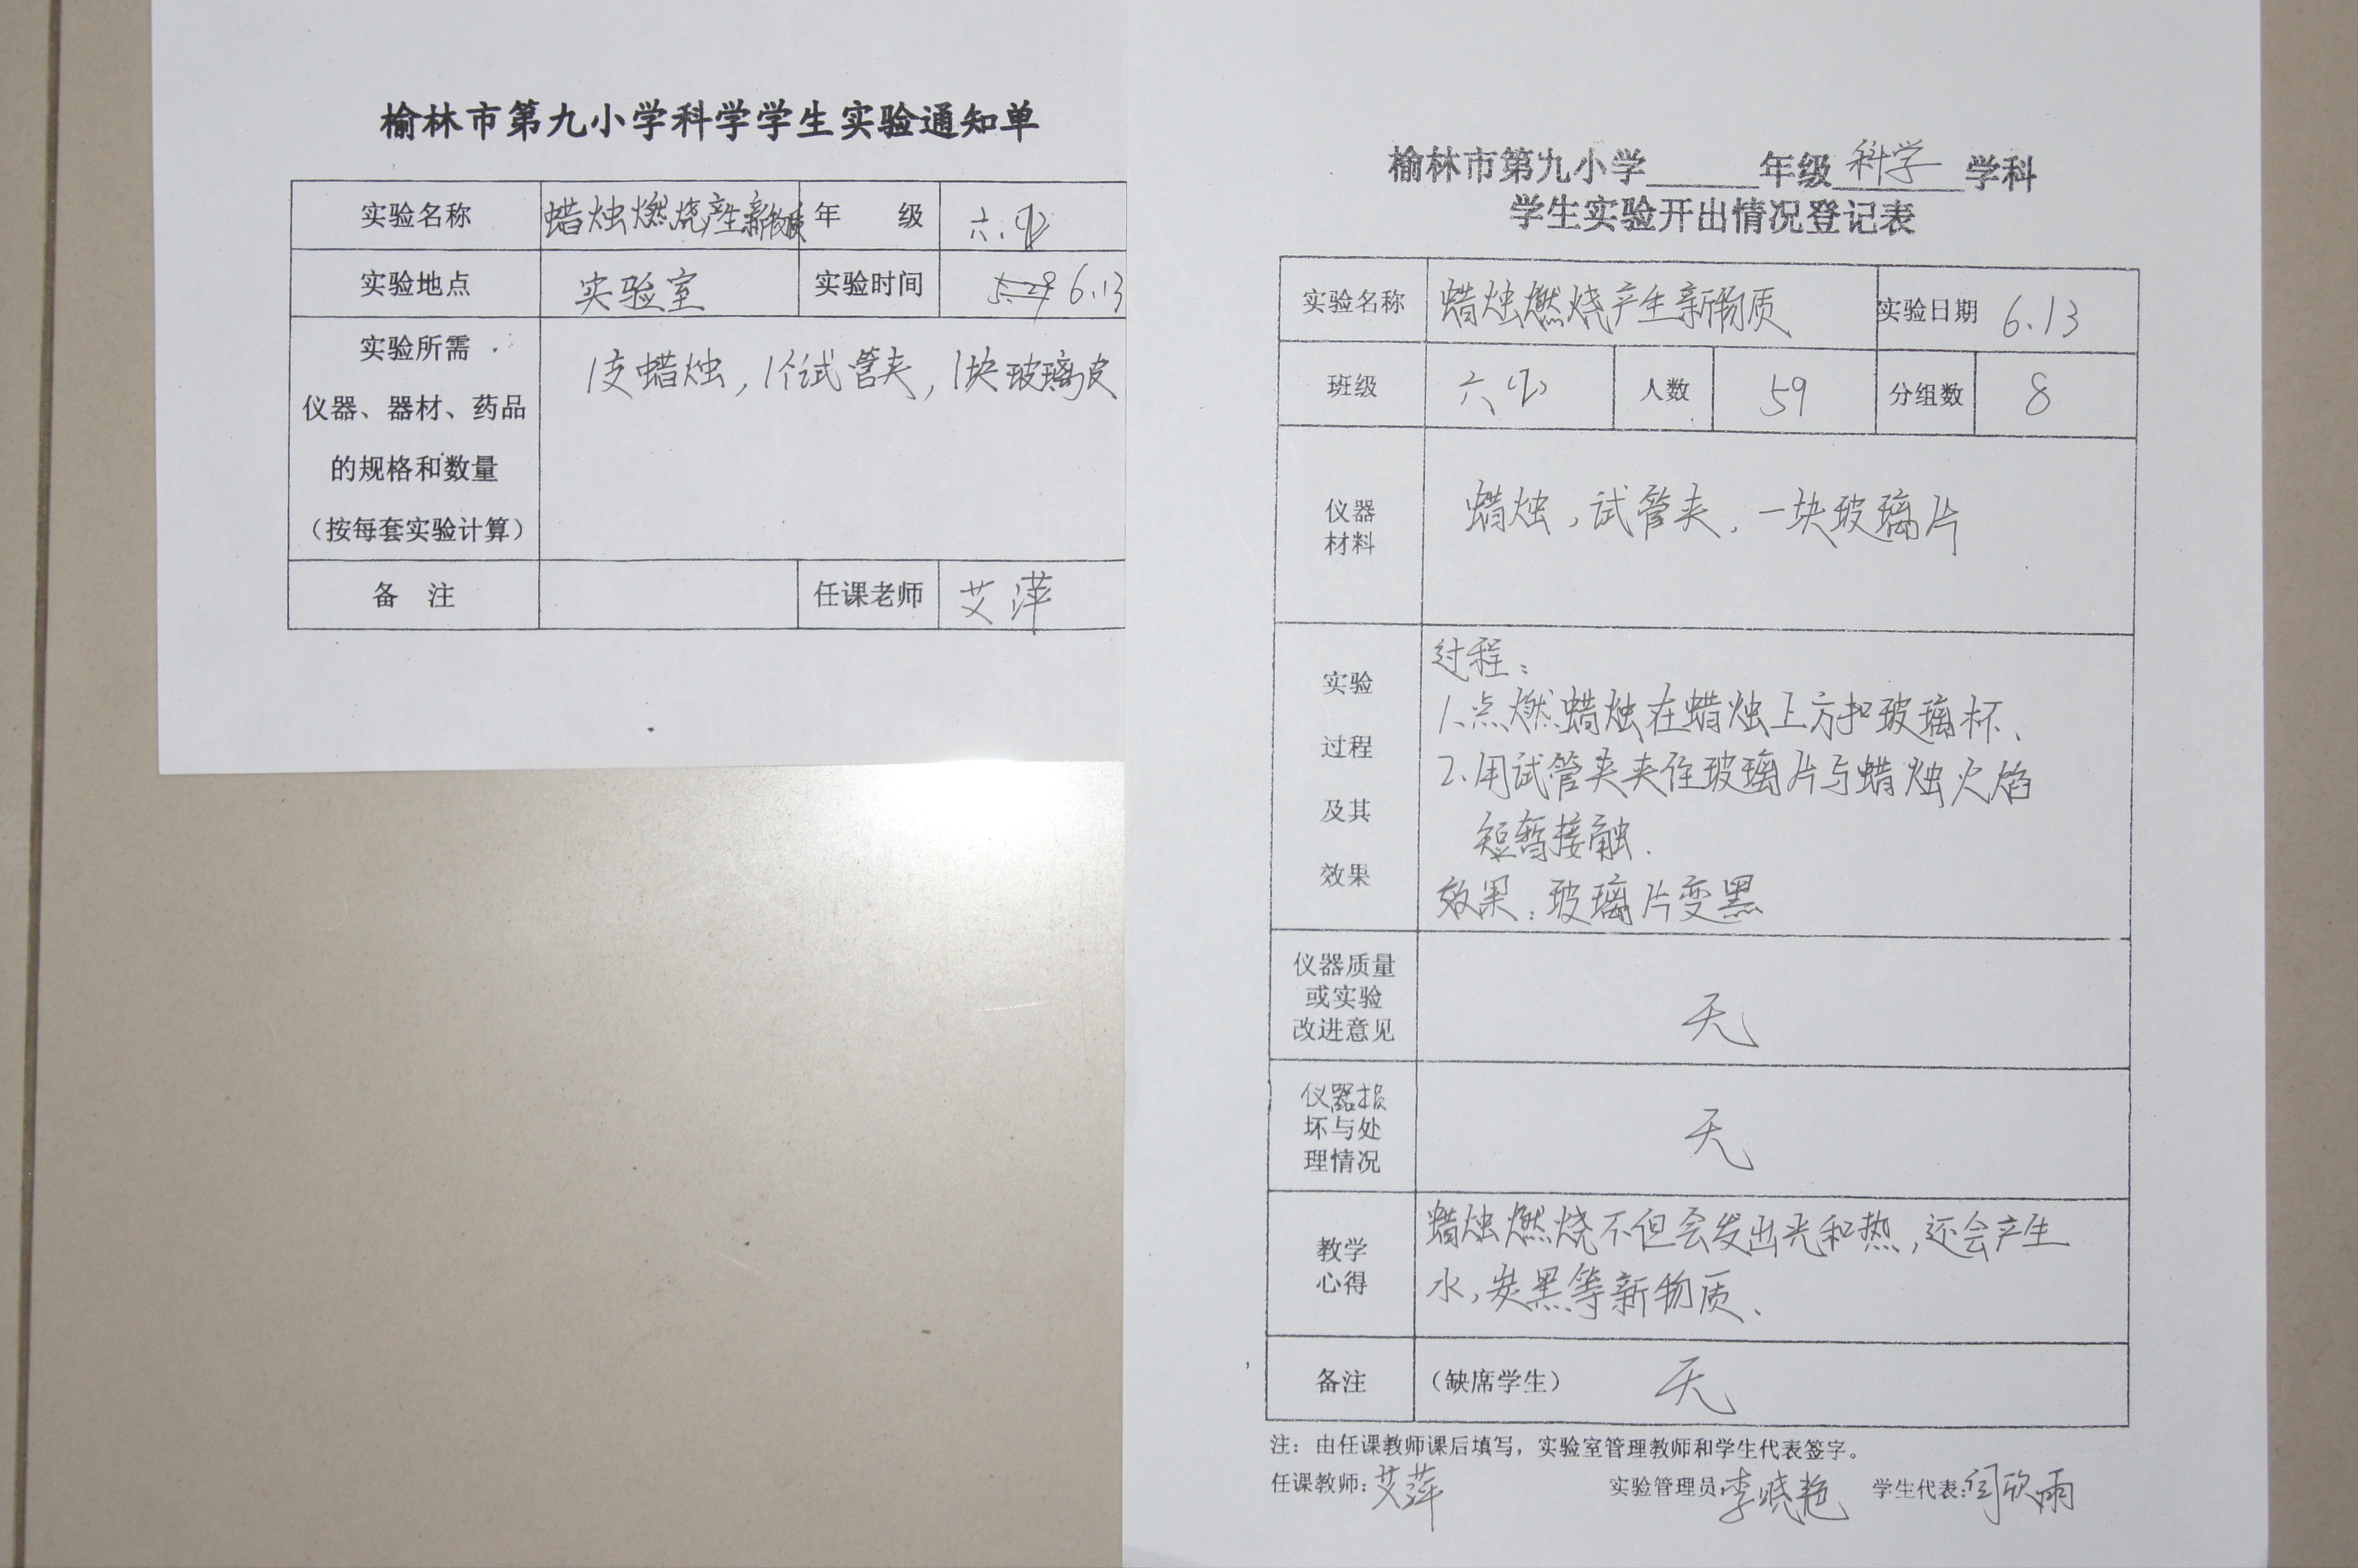 榆林市第九小学科学学生实验通知单
实验名称 蜡烛燃烧产生新物质 年 级 六.
实验地点 实验室 实验时间 6.13
实验所需
仪器、器材、药品
的规格和数量
（按每套实验计算）
1支蜡烛，1个试管夹，1块玻璃皮
备 注 任课老师 艾萍
榆林市第九小学 年级 科学 学科
学生实验开出情况登记表
实验名称 蜡烛燃烧产生新物质 实验日期 6.13
班级 六 人数 59 分组数 8
仪器
材料
蜡烛，试管夹，一块玻璃片
实验
过程
及其
效果
过程：
1、点燃蜡烛在蜡烛上方扣玻璃杯、
2、用试管夹夹住玻璃片与蜡烛火焰
短暂接触.
效果：玻璃片变黑
仪器质量
或实验
改进意见
无
仪器损
坏与处
理情况
无
教学
心得
蜡烛燃烧不但会发出光和热，还会产生
水，炭黑等新物质、
备注 （缺席学生） 无
注：由任课教师课后填写，实验室管理教师和学生代表签字。
任课教师：艾萍 实验管理员：李晓艳 学生代表：闫欣雨